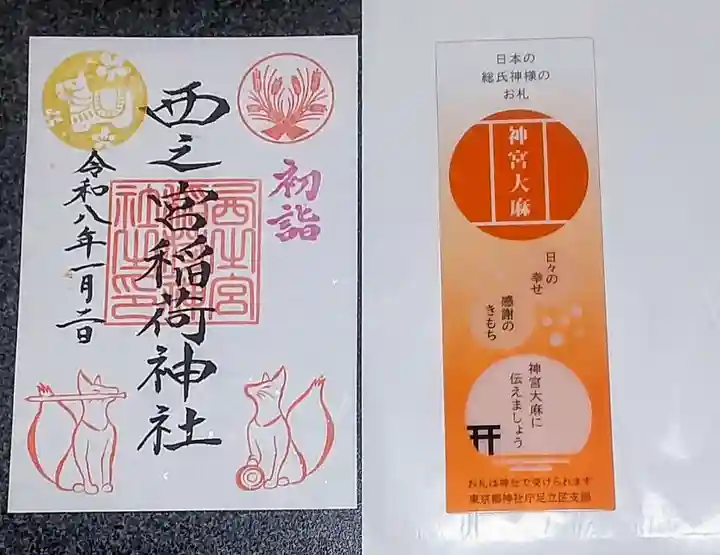 西之宮稲荷神社
初詣
令和八年一月二日
日本の
総氏神様の
お札
神宮大麻
日々の
幸せ
感謝の
きもち
神宮大麻に
伝えましょう
お札は神社で受けられます
東京都神社庁足立区支部